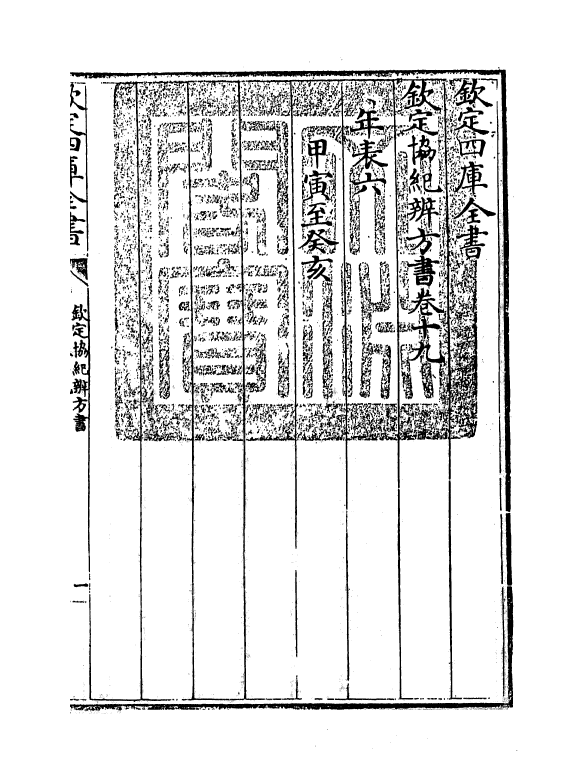 欽定四庫全書
欽定協紀辨方書卷十九
年表六
甲寅至癸亥
欽定四庫全書
欽定協紀辨方書
一